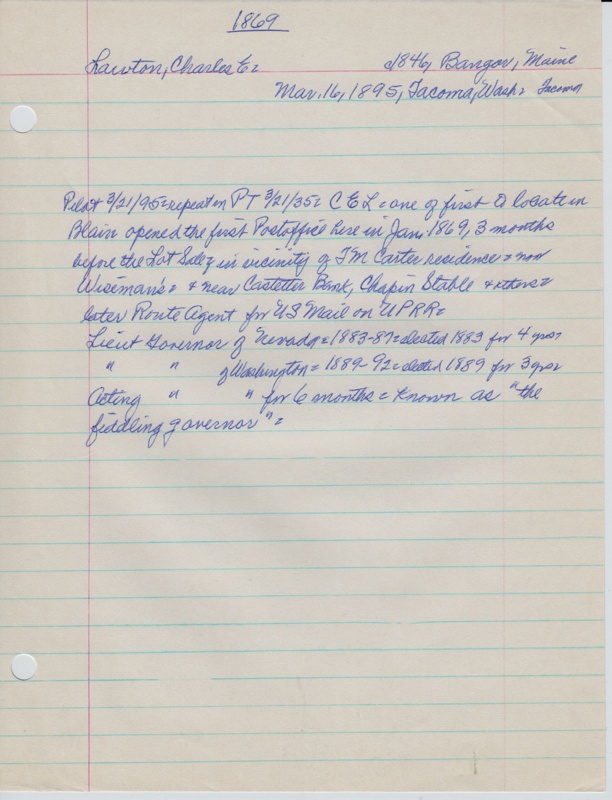 1869
Lawton, Charles E= c1846, Bangor, Maine
Mar. 16, 1895, Tacoma, Wash= Tacoma
Pilot 3/21/95=repeat on PT 3/21/35= C E L = one of first to locate in
Blair opened the first Postoffice here in Jan. 1869, 3 months
before the Lot Sale in vicinity of TM Carter residence = now
Wiseman's = & near Castetter Bank, Chapin Stable & others=
later Route Agent for US Mail on UPRR=
Lieut Governor of Nevada=1883-87=elected 1883 for 4 yrs=
" " of Washington=1889-92=elected 1889 for 3 yrs
Acting " " for 6 months = known as "the
fiddling governor"=